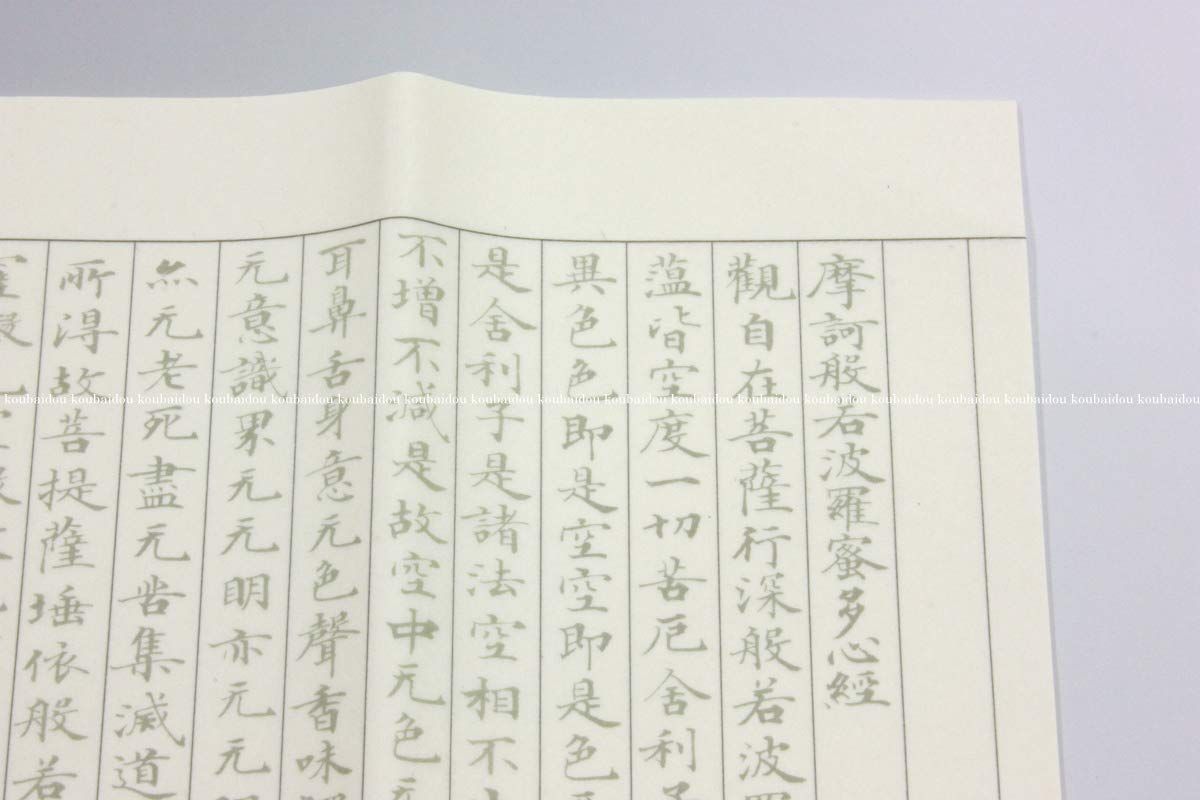 摩訶般若波羅蜜多心經
觀自在菩薩行深般若波
蕰皆空度一切苦厄舍利子
異色色即是空空即是色
是舍利子是諸法空相不
不增不減是故空中元色元
耳鼻舌身意元色聲香味
元意識界元元明亦元元
亦元老死盡元苦集滅道
所得故菩提薩埵依般若
koubaidou koubaidou koubaidou koubaidou koubaidou koubaidou koubaidou koubaidou koubaidou koubaidou koubaidou koubaidou koubaidou koubaidou koubaidou koubaidou koubaidou koubaidou